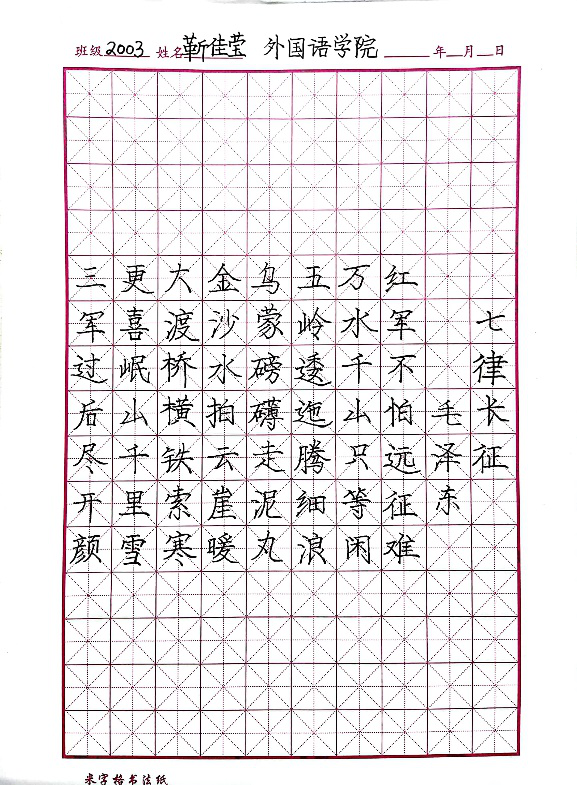 班级 2003 姓名 靳佳莹 外国语学院 年 月 日
七律长征
毛泽东
红军不怕远征难
万水千山只等闲
五岭逶迤腾细浪
乌蒙磅礴走泥丸
金沙水拍云崖暖
大渡桥横铁索寒
更喜岷山千里雪
三军过后尽开颜
米字格书法纸